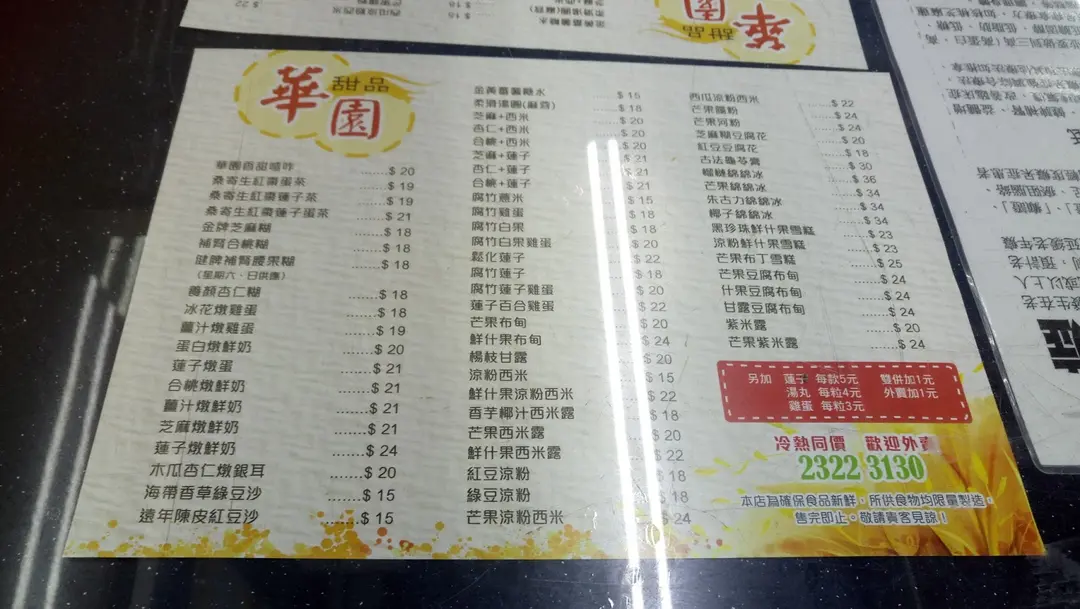 華園
甜品
華園香甜喳咋 ......$ 20
桑寄生紅棗蛋茶 ......$ 19
桑寄生紅棗蓮子茶 ......$ 19
桑寄生紅棗蓮子蛋茶 ......$ 21
金牌芝麻糊 ......$ 18
補腎合桃糊 ......$ 18
健脾補腎腰果糊 ......$ 18
(星期六、日供應)
養顏杏仁糊 ......$ 18
冰花燉雞蛋 ......$ 18
薑汁燉雞蛋 ......$ 19
蛋白燉鮮奶 ......$ 20
蓮子燉蛋 ......$ 21
合桃燉鮮奶 ......$ 21
薑汁燉鮮奶 ......$ 21
芝麻燉鮮奶 ......$ 21
蓮子燉鮮奶 ......$ 24
木瓜杏仁燉銀耳 ......$ 20
海帶香草綠豆沙 ......$ 15
遠年陳皮紅豆沙 ......$ 15
金黃番薯糖水 ......$ 15
柔滑湯圓(麻蓉) ......$ 18
芝麻+西米 ......$ 20
杏仁+西米 ......$ 20
合桃+西米 ......$ 20
芝麻+蓮子 ......$ 21
杏仁+蓮子 ......$ 21
合桃+蓮子 ......$ 21
腐竹薏米 ......$ 15
腐竹雞蛋 ......$ 18
腐竹白果 ......$ 18
腐竹白果雞蛋 ......$ 20
鬆化蓮子 ......$ 22
腐竹蓮子 ......$ 18
腐竹蓮子雞蛋 ......$ 20
蓮子百合雞蛋 ......$ 22
芒果布甸 ......$ 20
鮮什果布甸 ......$ 24
楊枝甘露 ......$ 20
涼粉西米 ......$ 15
鮮什果涼粉西米 ......$ 22
香芋椰汁西米露 ......$ 18
芒果西米露 ......$ 20
鮮什果西米露 ......$ 22
紅豆涼粉 ......$ 18
綠豆涼粉 ......$ 18
芒果涼粉西米 ......$ 24
西瓜涼粉西米 ......$ 22
芒果腸粉 ......$ 24
芒果河粉 ......$ 24
芝麻糊豆腐花 ......$ 20
紅豆豆腐花 ......$ 18
古法龜苓膏 ......$ 30
榴槤綿綿冰 ......$ 36
芒果綿綿冰 ......$ 34
朱古力綿綿冰 ......$ 34
椰子綿綿冰 ......$ 34
黑珍珠鮮什果雪糕 ......$ 23
涼粉鮮什果雪糕 ......$ 23
芒果布丁雪糕 ......$ 25
芒果豆腐布甸 ......$ 24
什果豆腐布甸 ......$ 24
甘露豆腐布甸 ......$ 24
紫米露 ......$ 20
芒果紫米露 ......$ 24
另加 蓮子 每款5元 雙併加1元
湯丸 每粒4元 外賣加1元
雞蛋 每粒3元
冷熱同價 歡迎外賣
2322 3130
本店為確保食品新鮮，所供食物均限量製造，
售完即止。敬請貴客見諒！